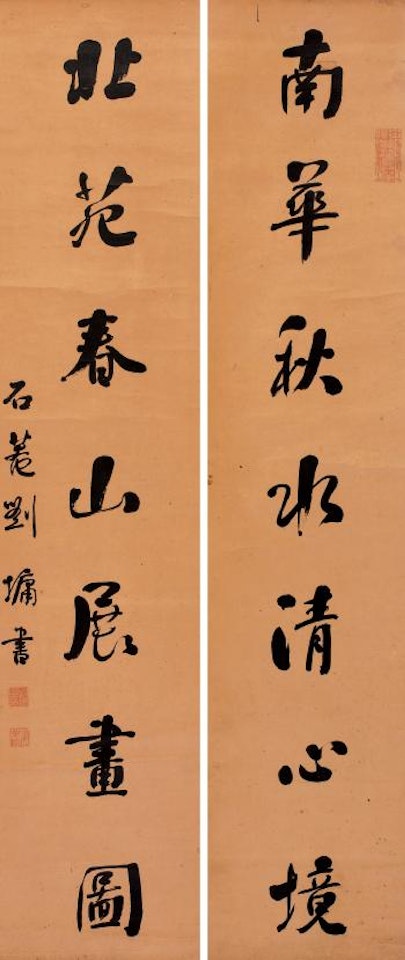 南華秋水清心境
北苑春山展畫圖
石菴劉墉書